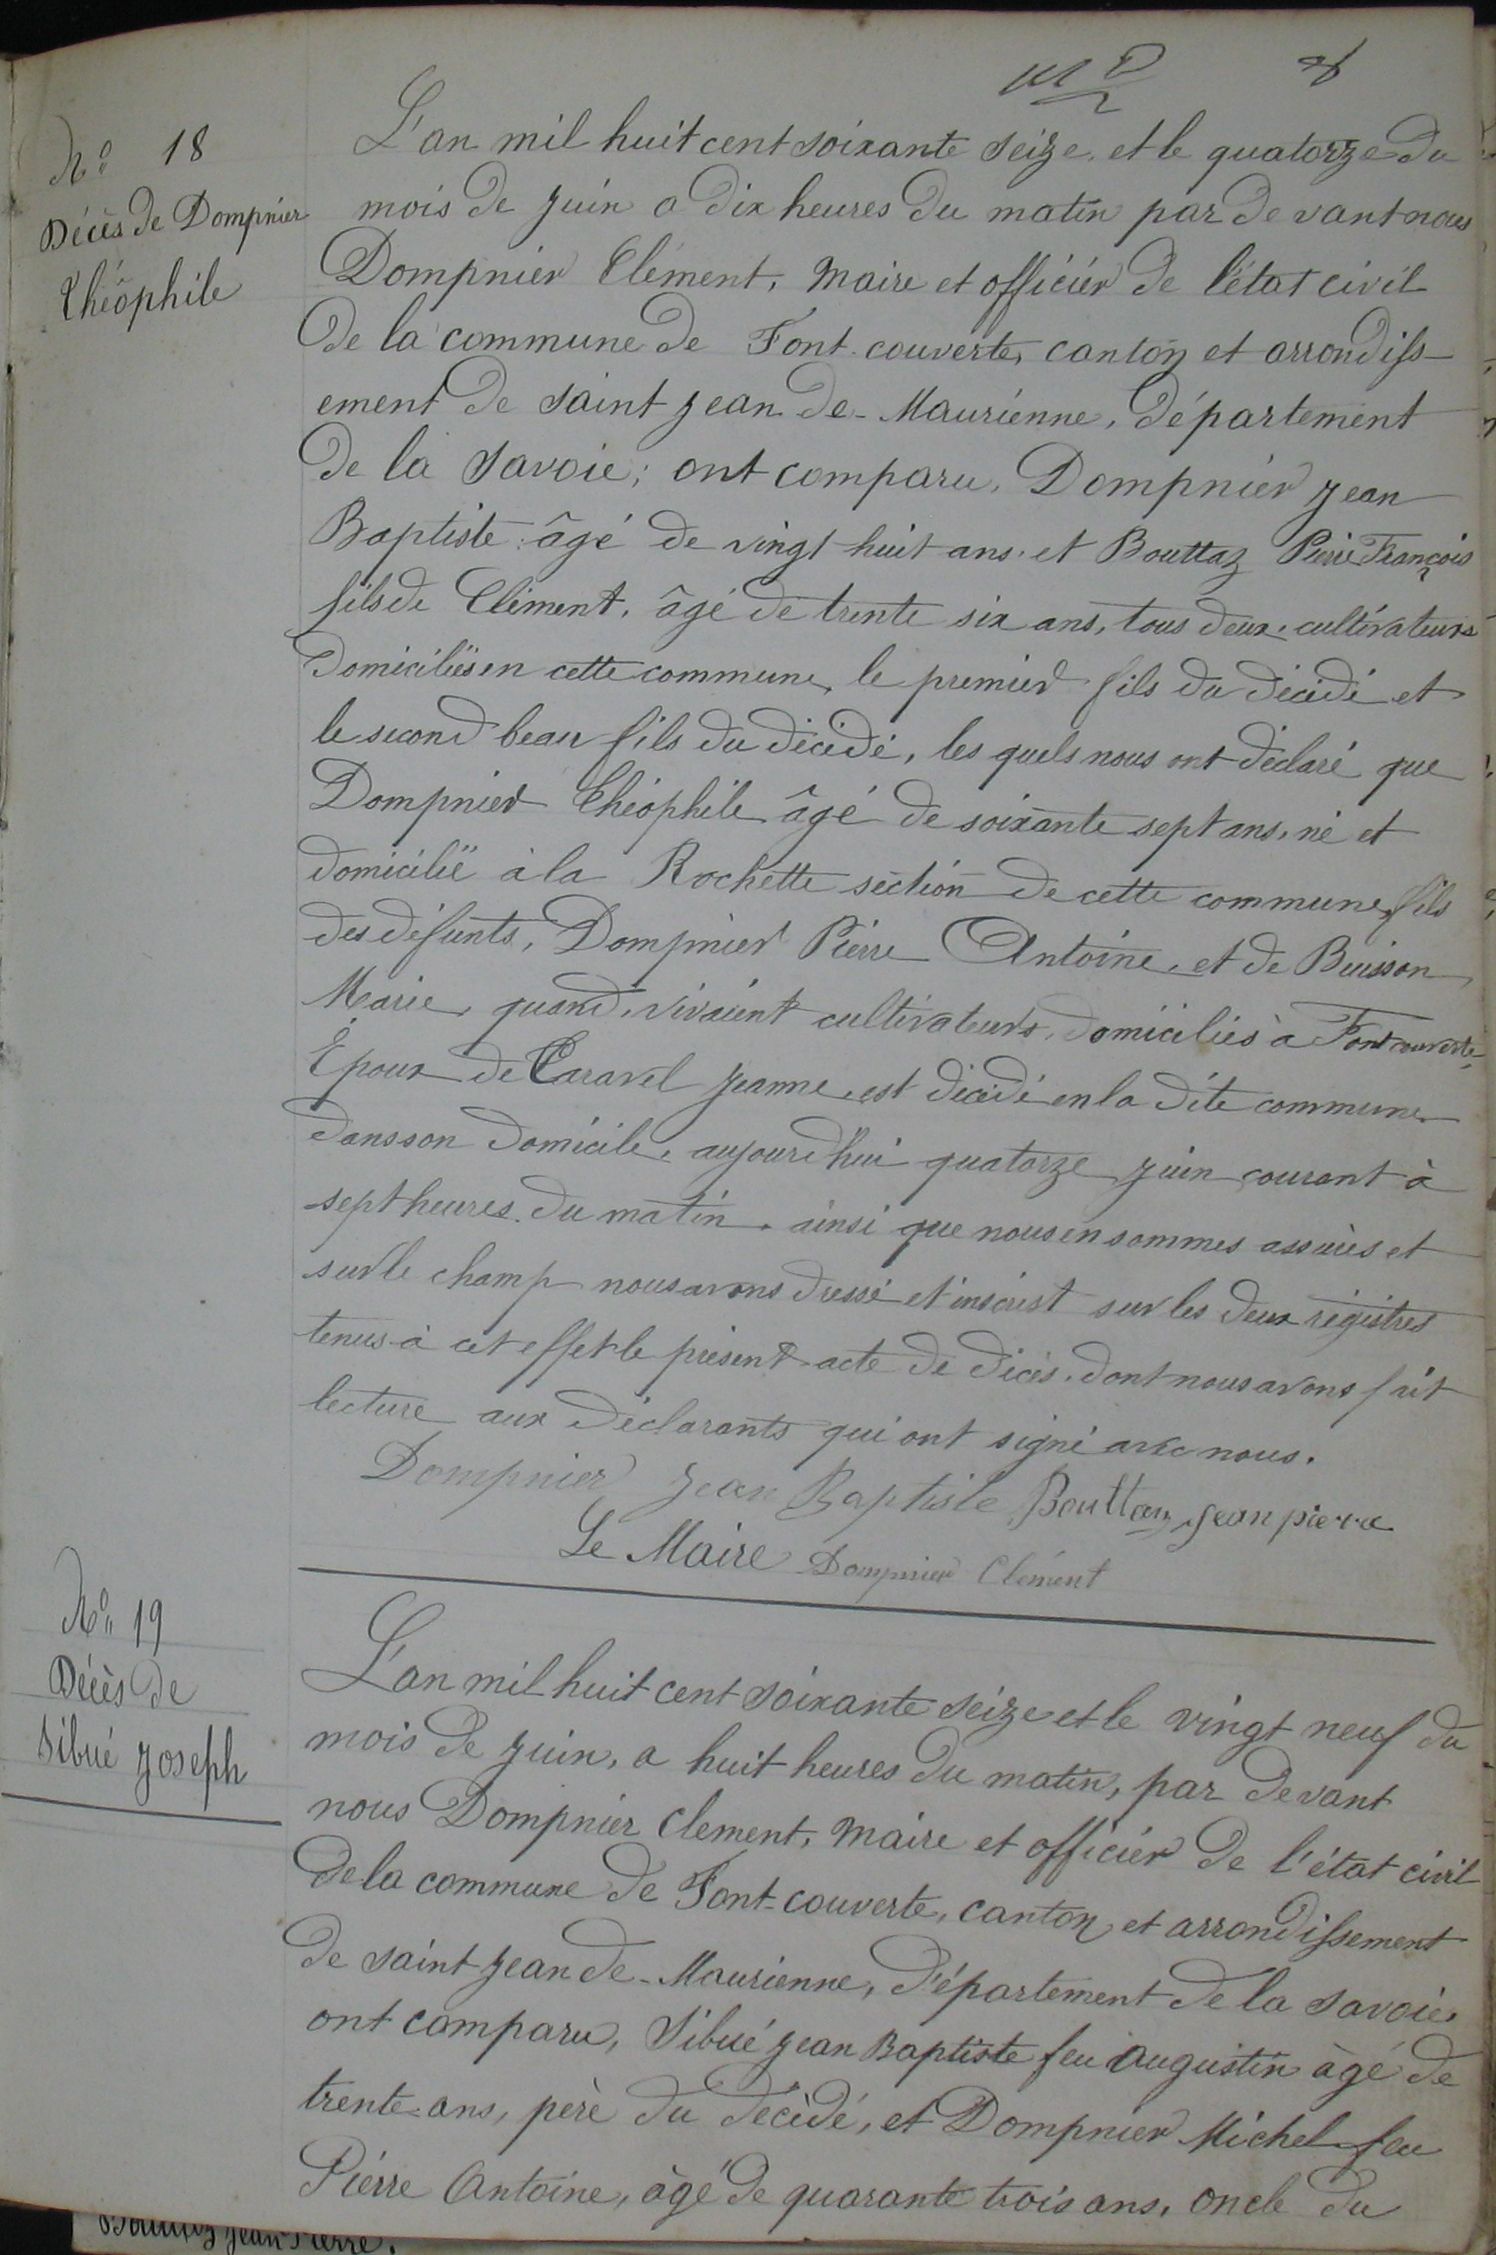 N° 18
Décès de Dompnier
Théophile
L'an mil huit cent soixante seize, et le quatorze du
mois de juin a dix heures du matin par devant nous
Dompnier Clément, Maire et officiér de l'état civil
de la commune de Font-couverte, canton et arrondiss-
ement de saint jean de-Maurienne, département
de la Savoie; ont comparu, Dompniér jean
Baptiste âgé de vingt-huit ans, et Bouttaz Pierre François
fils de Clément, âgé de trente six ans, tous deux cultivateurs
domiciliés en cette commune, le premier fils du décédé et
le second beau fils du décédé, les quels nous ont déclaré que
Dompnier Théophile âgé de soixante sept ans, né et
domicilié à la Rochette séction de cette commune, fils
des défunts, Dompnier Piérre Antoine, et de Buisson
Marie, quand vivaient cultivateurs, domiciliés à Fontcouverte,
Epoux de Caravel jeanne, est décédé en la dite commune
dans son domicile, aujourd'hui quatorze juin courant à
sept heures du matin, ainsi que nous en sommes assurés et
sur le champ nous avons dressé et inscrist sur les deux régistres
tenus à cet effet le présent acte de décès, dont nous avons fait
lecture aux déclarants qui ont signé avec nous.
Dompnier jean Baptiste Bouttaz jean pierre
Le Maire Dompnier Clément
N° 19
Décès de
Sibué joseph
L'an mil huit cent soixante seize et le vingt neuf du
mois de juin, a huit heures du matin, par devant
nous Dompnier Clement, Maire et officiér de l'état civil
de la commune de Font-couverte, canton et arrondissement
de saint jean de-Maurienne, département de la Savoie
ont comparu, Sibué jean Baptiste feu Augustin âgé de
trente ans, père du décédé, et Dompnier Michel feu
Piérre Antoine, âgé de quarante trois ans, oncle du